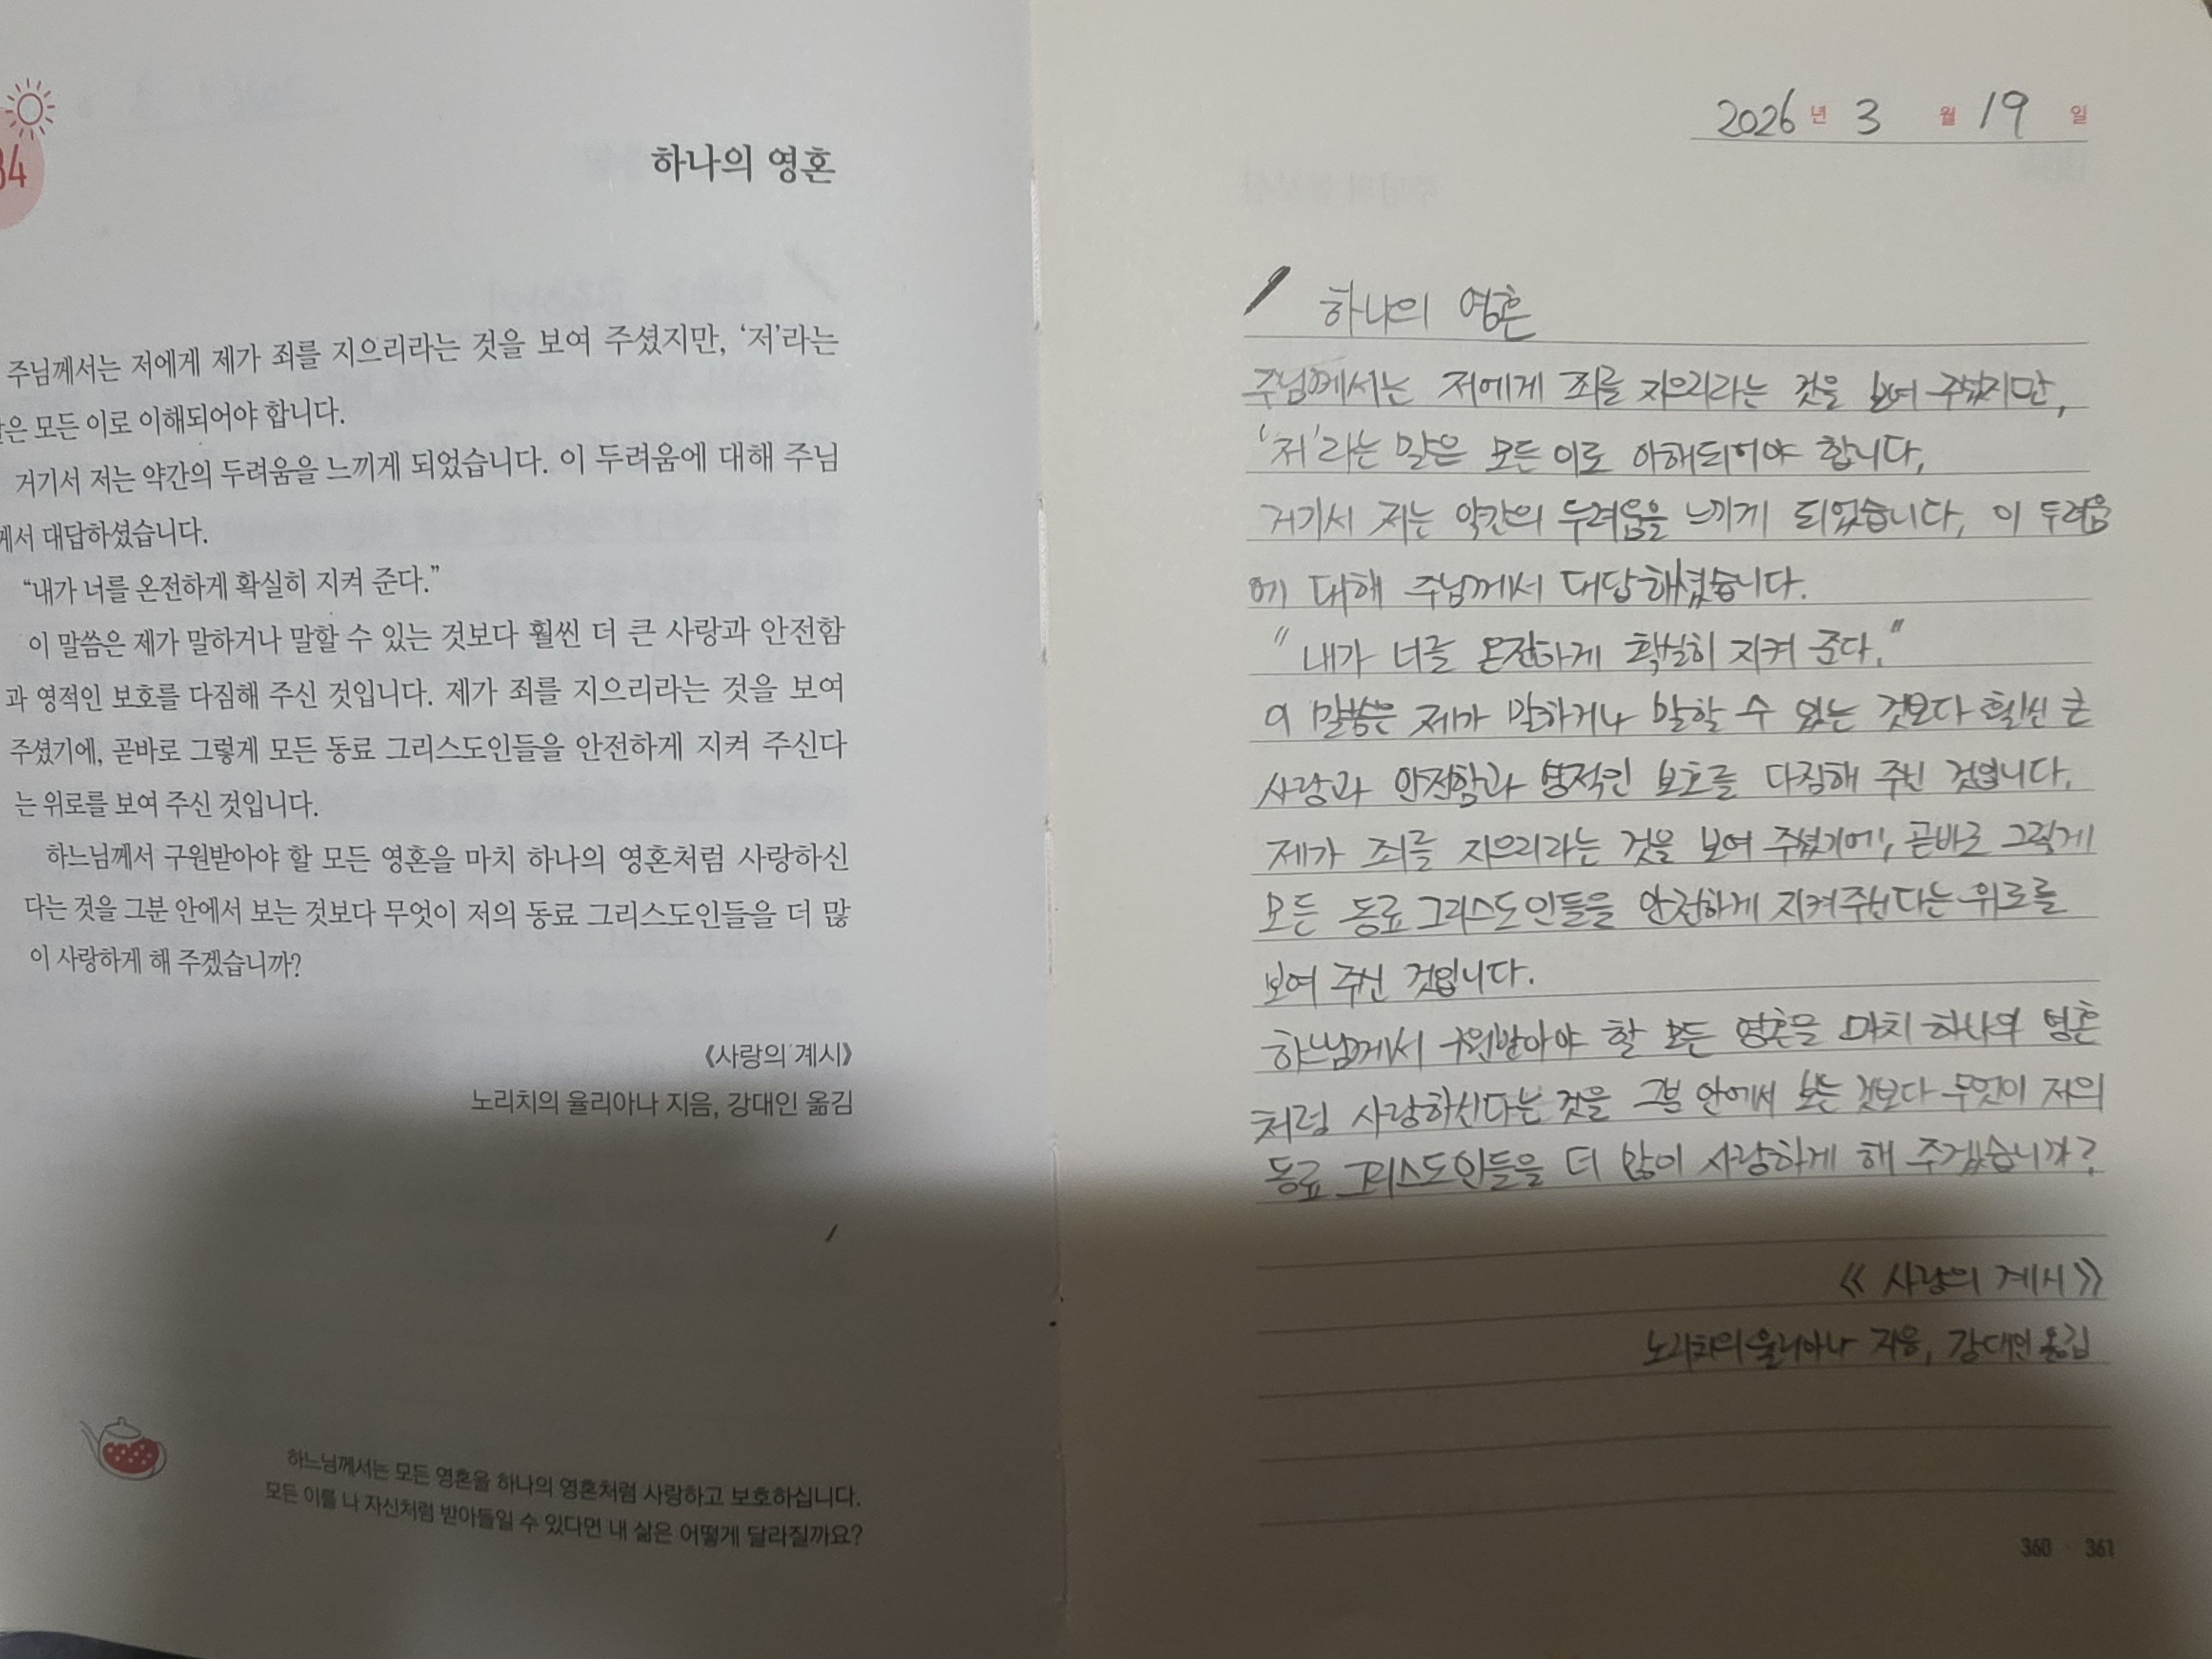 34
하나의 영혼
주님께서는 저에게 제가 죄를 지으리라는 것을 보여 주셨지만, ‘저’라는
은 모든 이로 이해되어야 합니다.
거기서 저는 약간의 두려움을 느끼게 되었습니다. 이 두려움에 대해 주님
께서 대답하셨습니다.
“내가 너를 온전하게 확실히 지켜 준다.”
이 말씀은 제가 말하거나 말할 수 있는 것보다 훨씬 더 큰 사랑과 안전함
과 영적인 보호를 다짐해 주신 것입니다. 제가 죄를 지으리라는 것을 보여
주셨기에, 곧바로 그렇게 모든 동료 그리스도인들을 안전하게 지켜 주신다
는 위로를 보여 주신 것입니다.
하느님께서 구원받아야 할 모든 영혼을 마치 하나의 영혼처럼 사랑하신
다는 것을 그분 안에서 보는 것보다 무엇이 저의 동료 그리스도인들을 더 많
이 사랑하게 해 주겠습니까?
《사랑의 계시》
노리치의 율리아나 지음, 강대인 옮김
하느님께서는 모든 영혼을 하나의 영혼처럼 사랑하고 보호하십니다.
모든 이를 나 자신처럼 받아들일 수 있다면 내 삶은 어떻게 달라질까요?
2026 년 3 월 19 일
하나의 영혼
주님께서는 저에게 죄를 지으리라는 것을 보여 주셨지만,
‘저’라는 말은 모든 이로 이해되어야 합니다.
거기서 저는 약간의 두려움을 느끼게 되었습니다. 이 두려움
에 대해 주님께서 대답하셨습니다.
“내가 너를 온전하게 확실히 지켜 준다.”
이 말씀은 제가 말하거나 말할 수 있는 것보다 훨씬 큰
사랑과 안전함과 영적인 보호를 다짐해 주신 것입니다.
제가 죄를 지으리라는 것을 보여 주셨기에, 곧바로 그렇게
모든 동료 그리스도인들을 안전하게 지켜주신다는 위로를
보여 주신 것입니다.
하느님께서 구원받아야 할 모든 영혼을 마치 하나의 영혼
처럼 사랑하신다는 것을 그분 안에서 보는 것보다 무엇이 저의
동료 그리스도인들을 더 많이 사랑하게 해 주겠습니까?
《사랑의 계시》
노리치의 율리아나 지음, 강대인 옮김
360 · 361